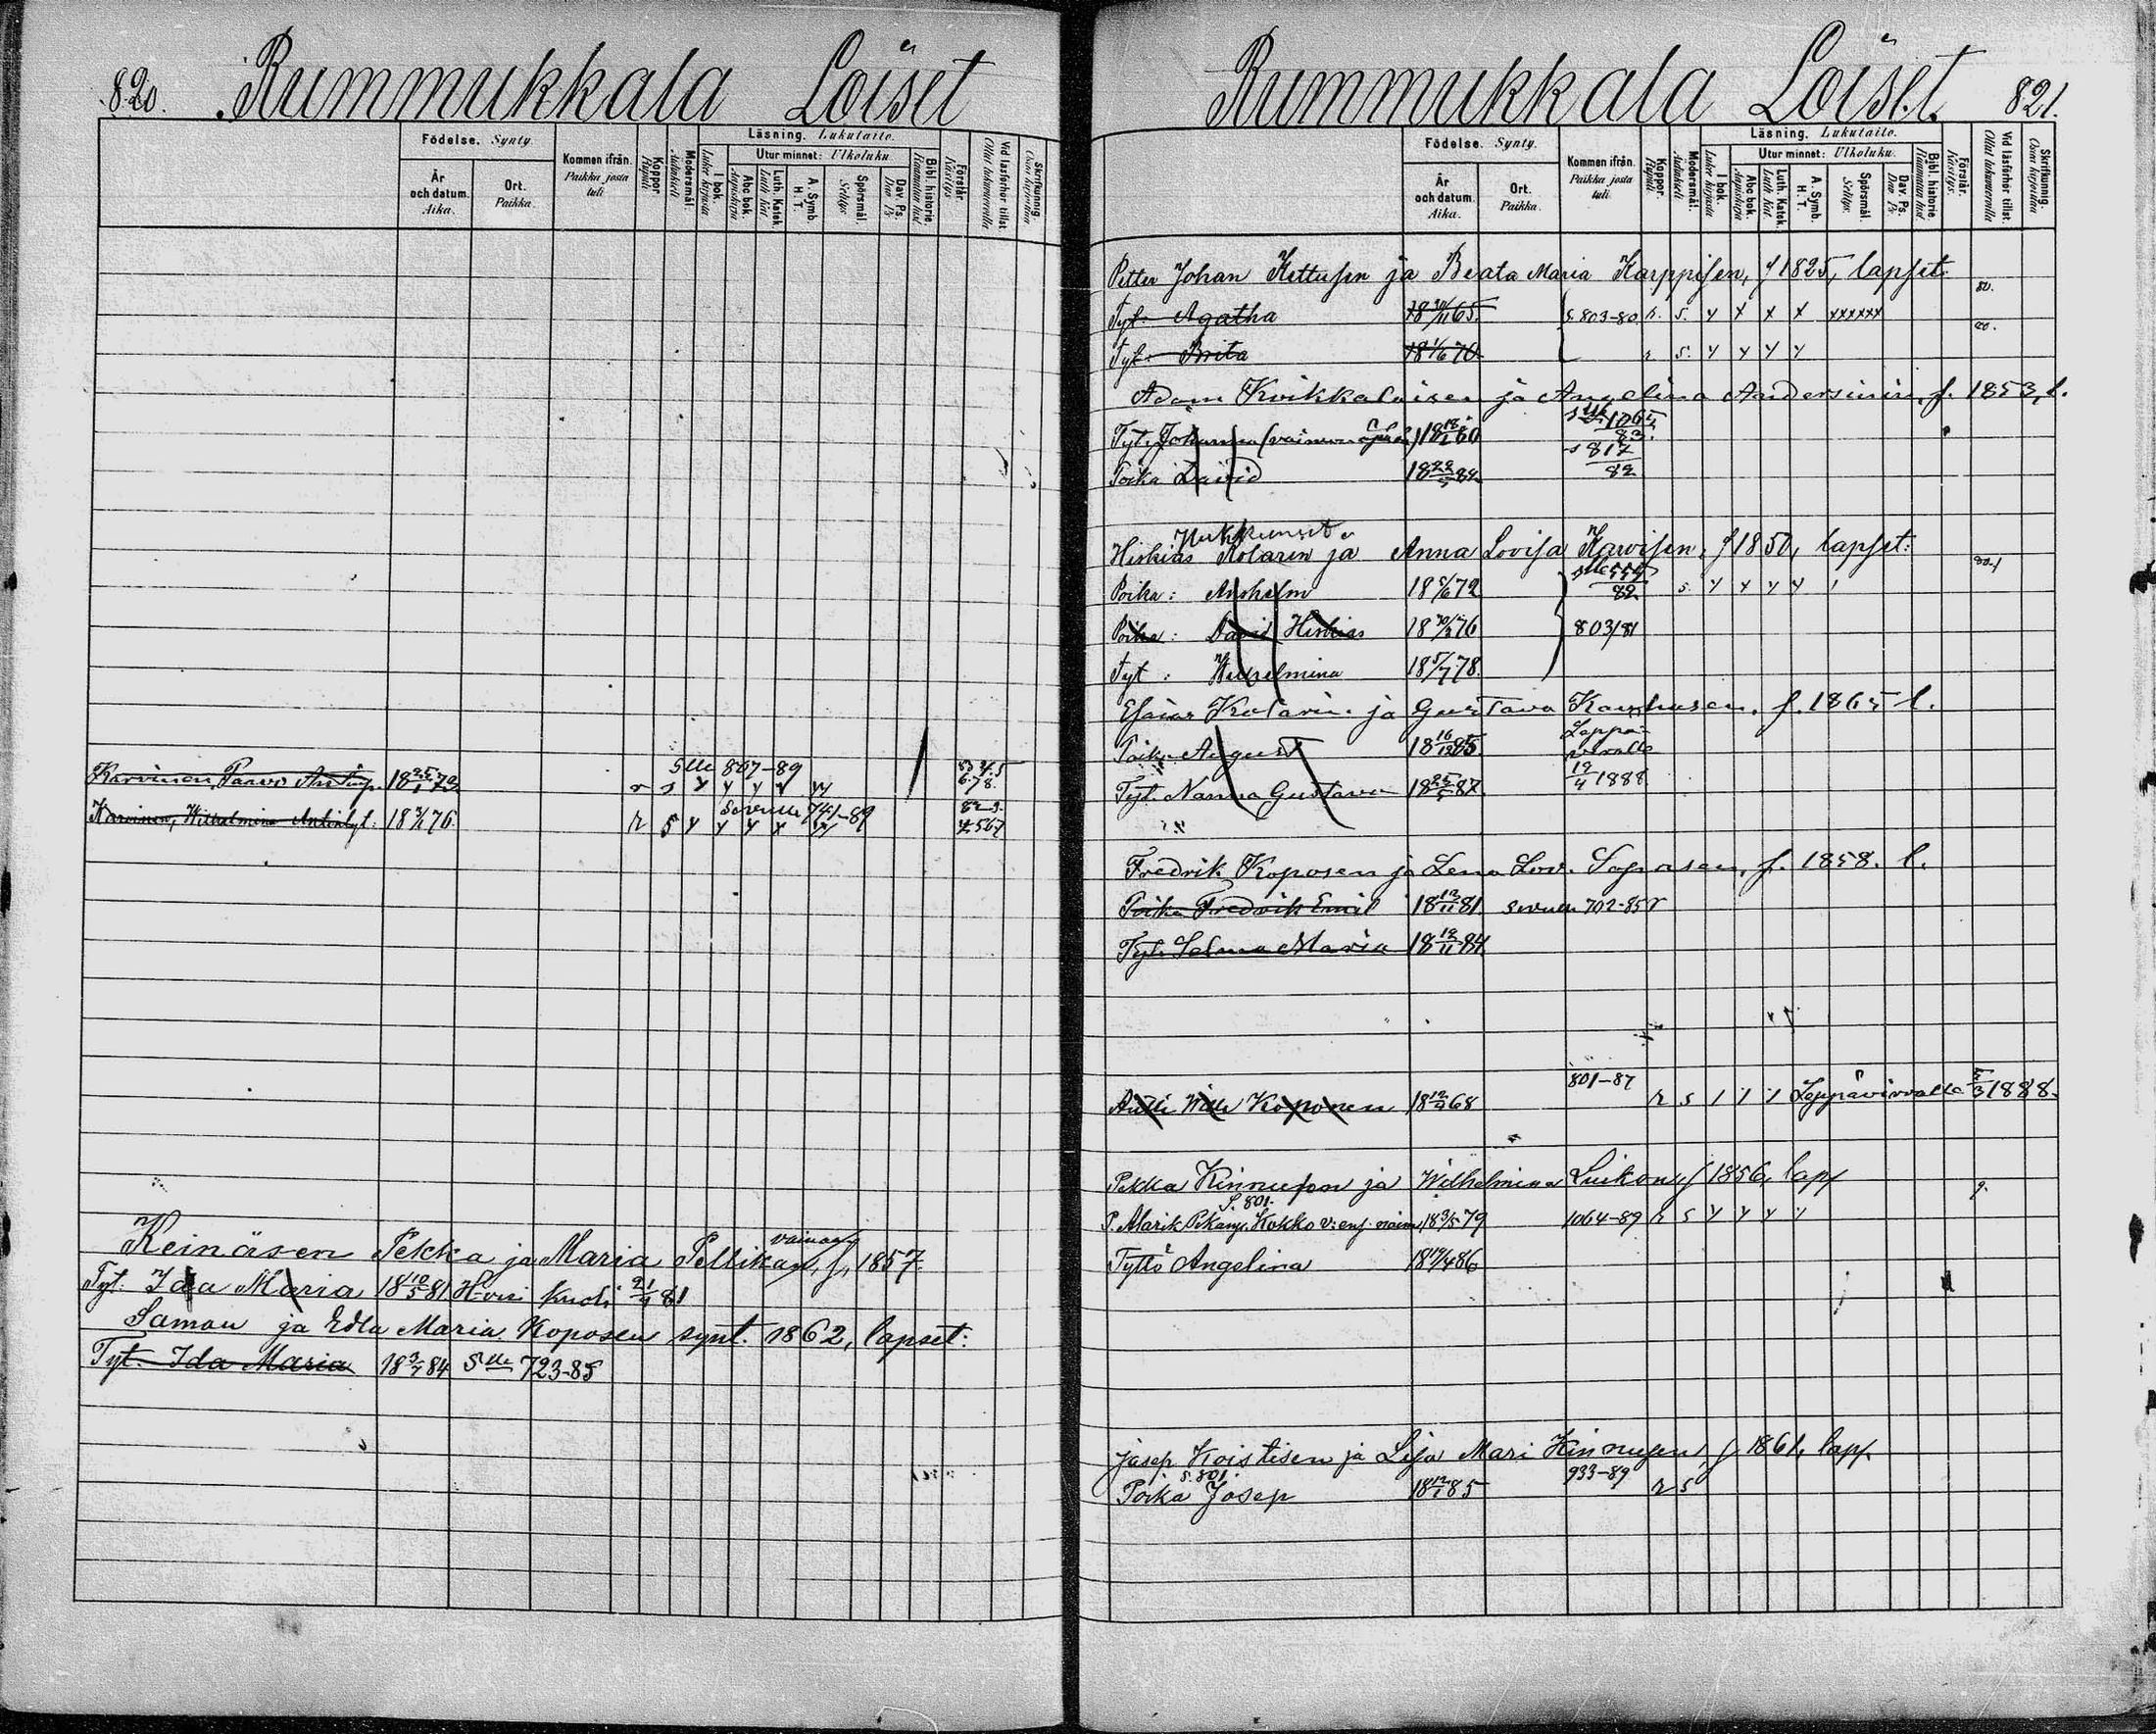 820. Rummukkala Loiset
Födelse. Synty.
År och datum. Aika.
Ort. Paikka.
Kommen ifrån. Paikka josta tuli.
Koppor. Rupuli
Modersmål. Äidinkieli
Läsning. Lukutaito.
I bok. Lukee kirjasta
Utur minnet: Ulkoluku.
Abc bok. Aapiskirja
Luth. Katek. Luth. Kat.
A. Symb. H. T.
Spörsmål. Selitys.
Dav. Ps. Dav. Ps.
Bibl. historie. Raamatun hist.
Förstår. Käsitys.
Vid läsförhör tillst. Ollut lukuvuorolla
Skrifkunnig. Osaa kirjoittaa
Slle 807-89
Karvinen, Paavo Antinp. 18 25/1 73 r s 3 4 5 6 7 8
Sivulle 741-89
Karvinen, Wilhelmina Antintyt. 18 76. r s 4 5 6 7
Reinäsen Pekka ja Maria Pellikan, vainaan f. 1857.
Tyt. Ida Maria 18 10/5 81 H-vesi kuoli 21/9 81
Samon ja Edla Maria Koposen synt. 1862, lapset:
Tyt. Ida Maria 18 3/7 84 Slle 723-85
Rummukkala Loiset. 821.
Födelse. Synty.
År och datum. Aika.
Ort. Paikka.
Kommen ifrån. Paikka josta tuli.
Koppor. Rupuli.
Modersmål. Äidinkieli
Läsning. Lukutaito.
I bok. Lukee kirjasta
Utur minnet: Ulkoluku.
Abc bok. Aapiskirja
Luth. Katek. Luth. Kat.
A. Symb. H. T.
Spörsmål. Selitys.
Dav. Ps. Dav. Ps.
Bibl. historie. Raamatun hist.
Förstår. Käsitys.
Vid läsförhör tillst. Ollut lukuvuorolla
Skrifkunnig. Osaa kirjoittaa
Petter Johan Kettusen ja Beata Maria Karppisen, f 1825, lapset.
Tyt. Agatha 18 30/11 65. S. 803-80 r. s. x x x xxxxxx
Tyt. Brita 18 1/6 70 r s.
Adam Kvikkalaisen ja Angelina Andersinin, f. 1853, l.
Tyt. Johanna (vaimon äpärä) 18 60 slle 1065 83.
Poika David 18 22/5 82 s 817 82
Hukkuneet.
Hiskias Kolarin ja Anna Lovisa Karvisen, f 1850, lapset:
Poika: Anshelm 18 5/6 72 slle 555 82 s
Poika: David Hiskias 18 76 803/81
Tyt: Wilhelmina 18 5/7 78.
Esaias Kolarin ja Gustava Kauhasen, f. 1865 l.
Poika August 18 16/12 85 Leppävirralle
Tyt. Nanna Gustava 18 25/5 87 12/4 1888
Fredrik Koposen ja Lena Lov. Sopasen, f. 1858. l.
Poika Fredrik Emil 18 12/11 81 sivulle 702-85 r
Tyt. Selma Maria 18 12/11 84
801-87
Antti Wille Koponen 18 12/4 68 r s Leppävirralle 5/3 1888.
Pekka Kinnusen ja Wilhelmina Luikon, f 1856, laps
S. 801.
P. Alarik Pekanp. Kokko v: ens. vaim. 18 3/5 79 1064-89 r s
Tyttö Angelina 18 17/4 86
Josep Koistisen ja Lisa Mari Kinnusen, f 1861, laps.
S. 801. 933-89
Poika Josep 18 12/1 85 r s